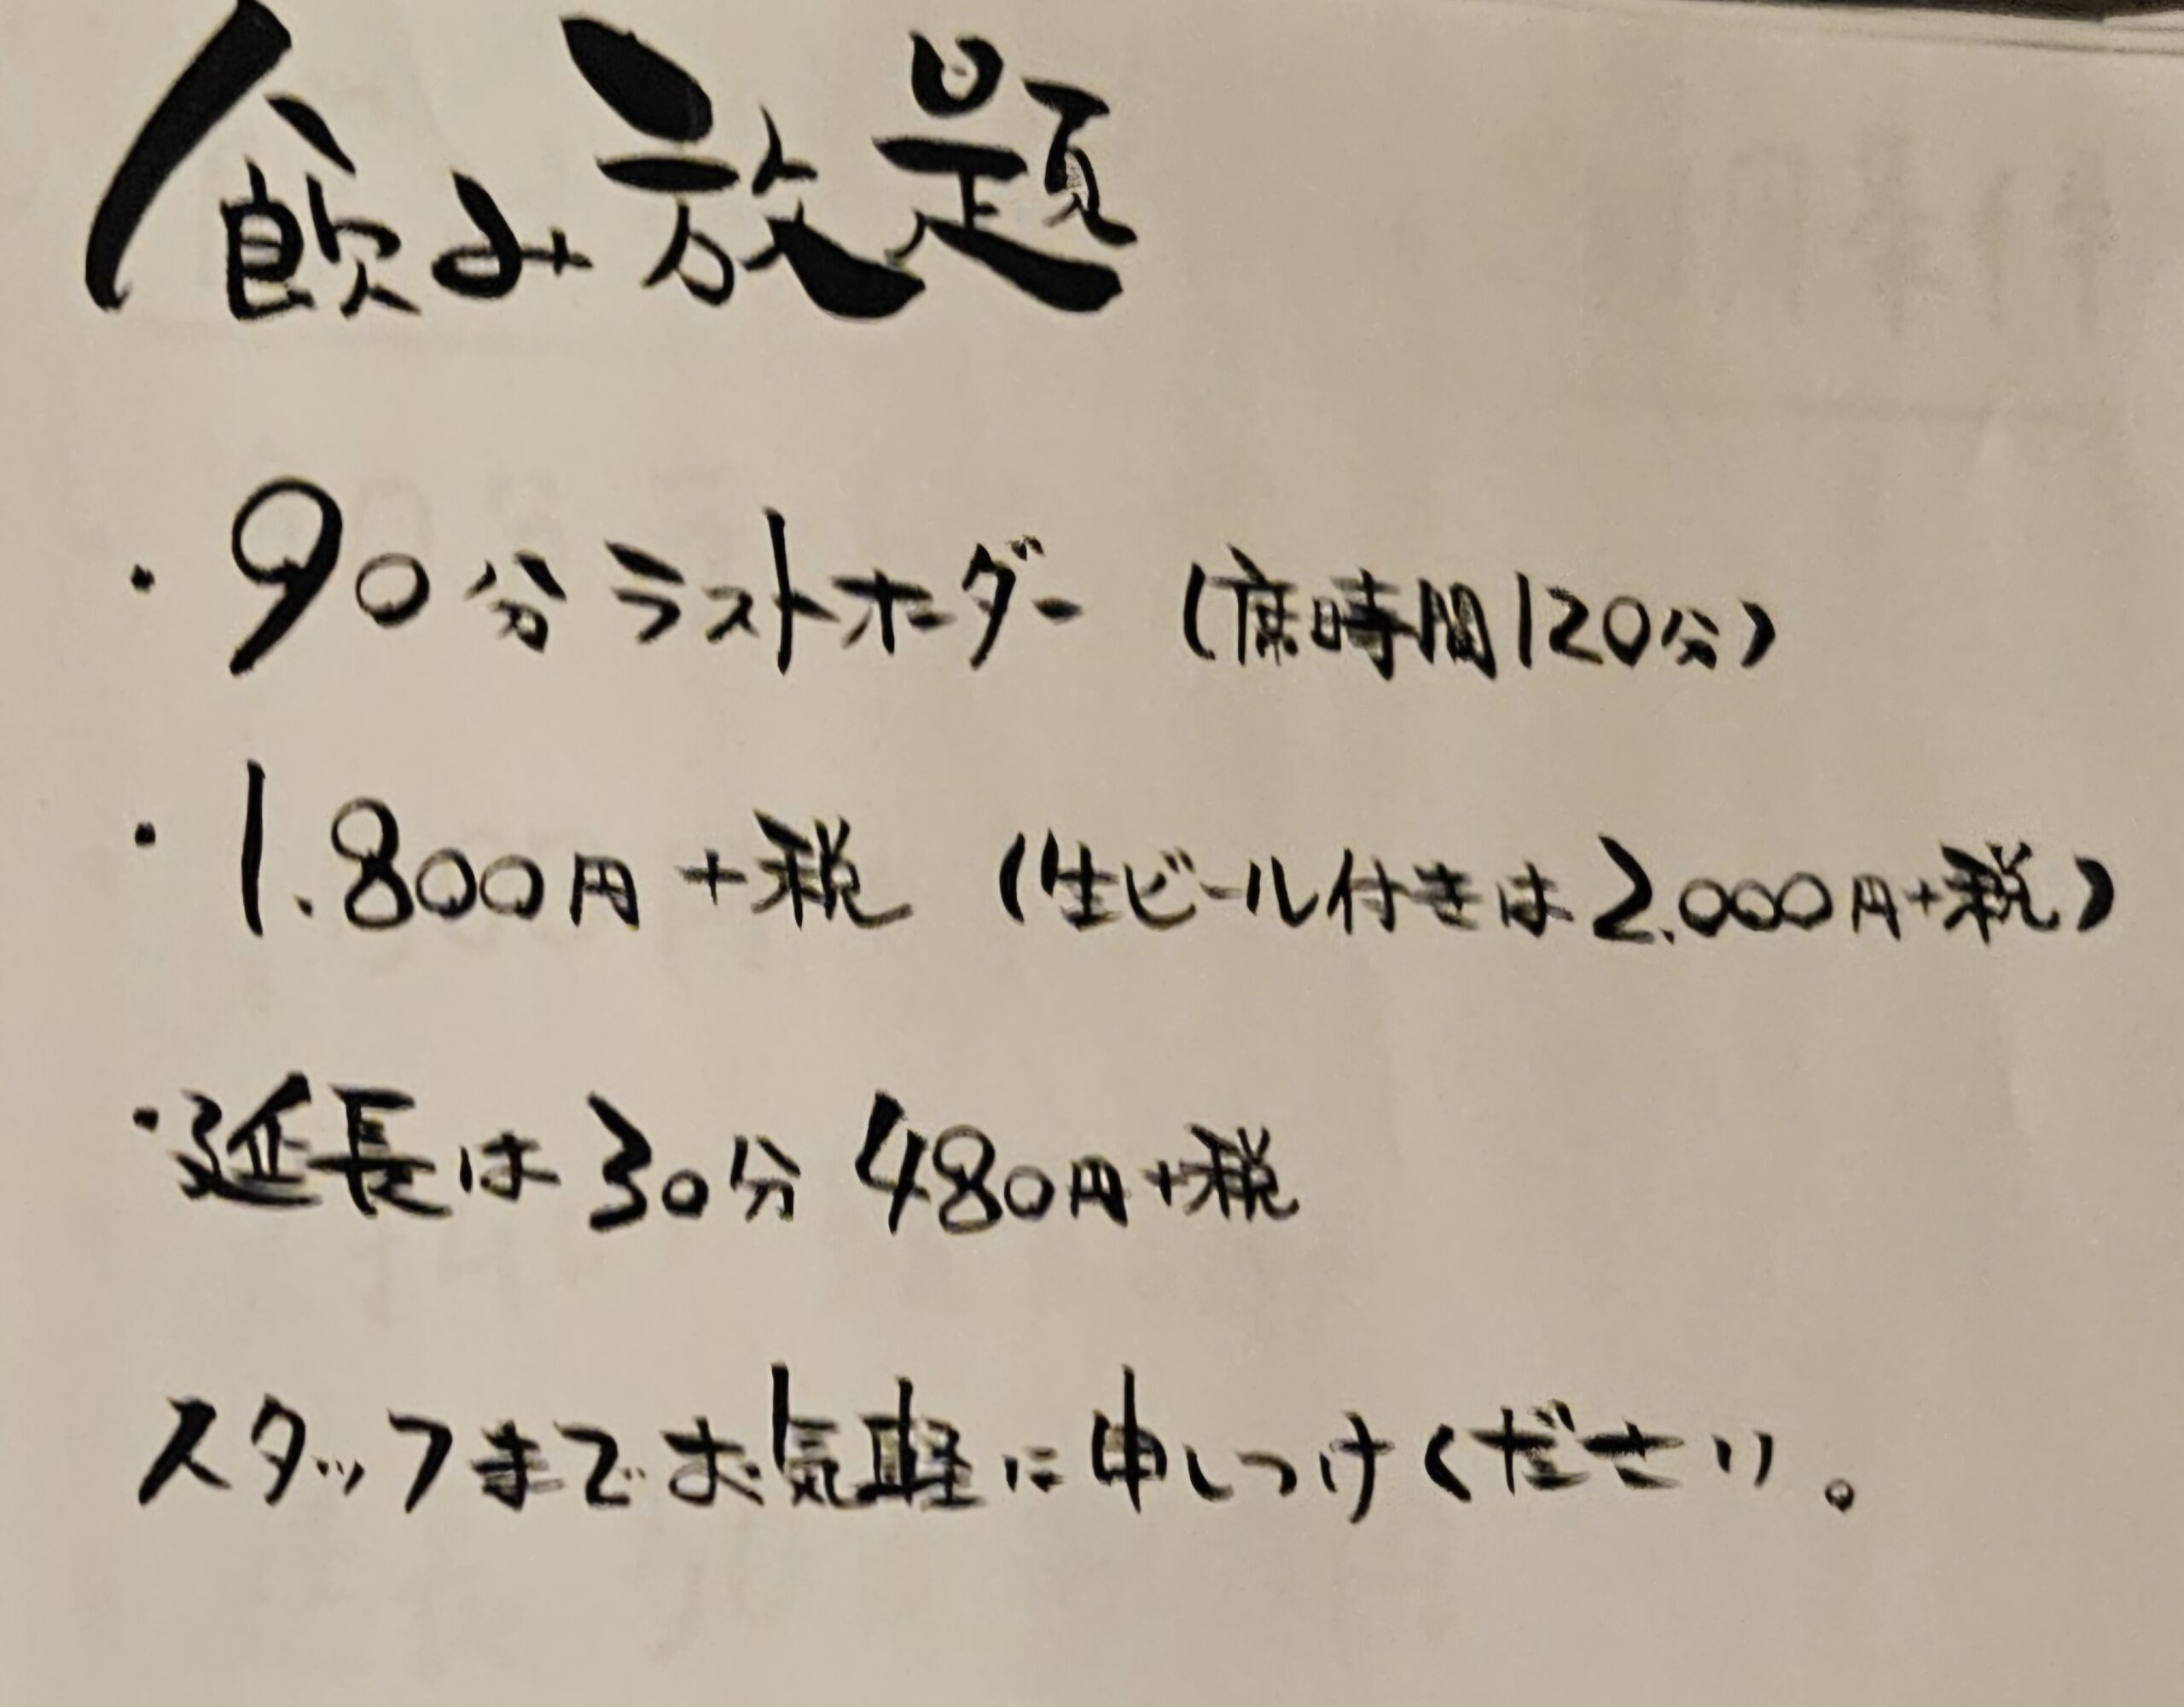 飲み放題
・90分ラストオーダー (席時間120分)
・1.800円+税 (生ビール付きは2.000円+税)
・延長は30分 480円+税
スタッフまでお気軽に申しつけください。